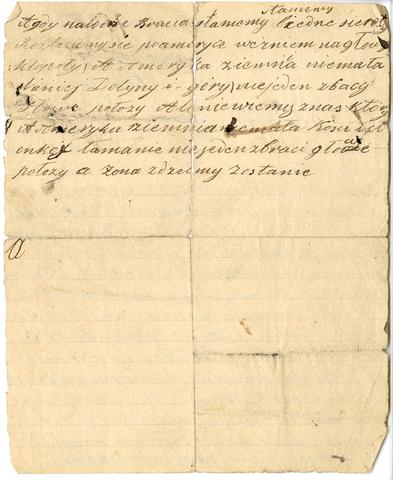 stamemy
A gdy na lodzie Bracia stamemy biedne sieroty
Rozbiezmy sie poameryce wezniem nagłow
kłopoty A Ameryka ziemna niemała
Naniej Doliny i góry niejeden zbracy
głowe połozy Aboniewiemy znas który
A Ameryka ziemnia niemała Kosci
łamanie niejeden zbraci głowe
połozy a zona zdziecmy zostanie
a